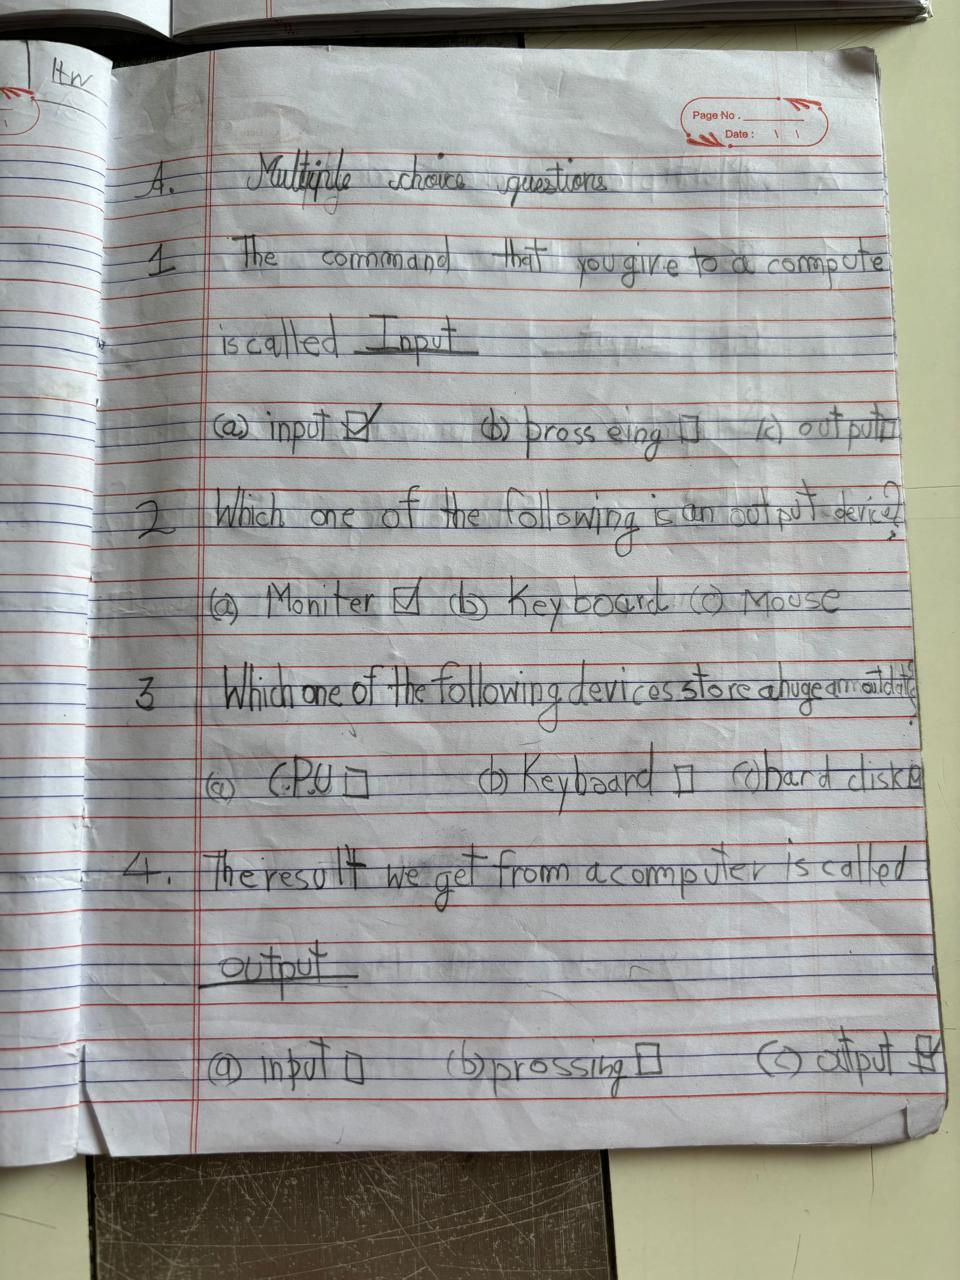 Hw
Page No.
Date :
A. Multiple choice questions
1 The command that you give to a compute
is called Input
(a) input ☑ (b) pross eing ☐ (c) output ☐
2 Which one of the following is an output device?
(a) Moniter ☑ (b) Keyboard (c) Mouse
3 Which one of the following devices store a huge amout data?
(a) C.P.U ☐ (b) Keyboard ☐ (c) hard disk ☑
4. The result we get from a computer is called
output
(a) input ☐ (b) prossing ☐ (c) output ☑